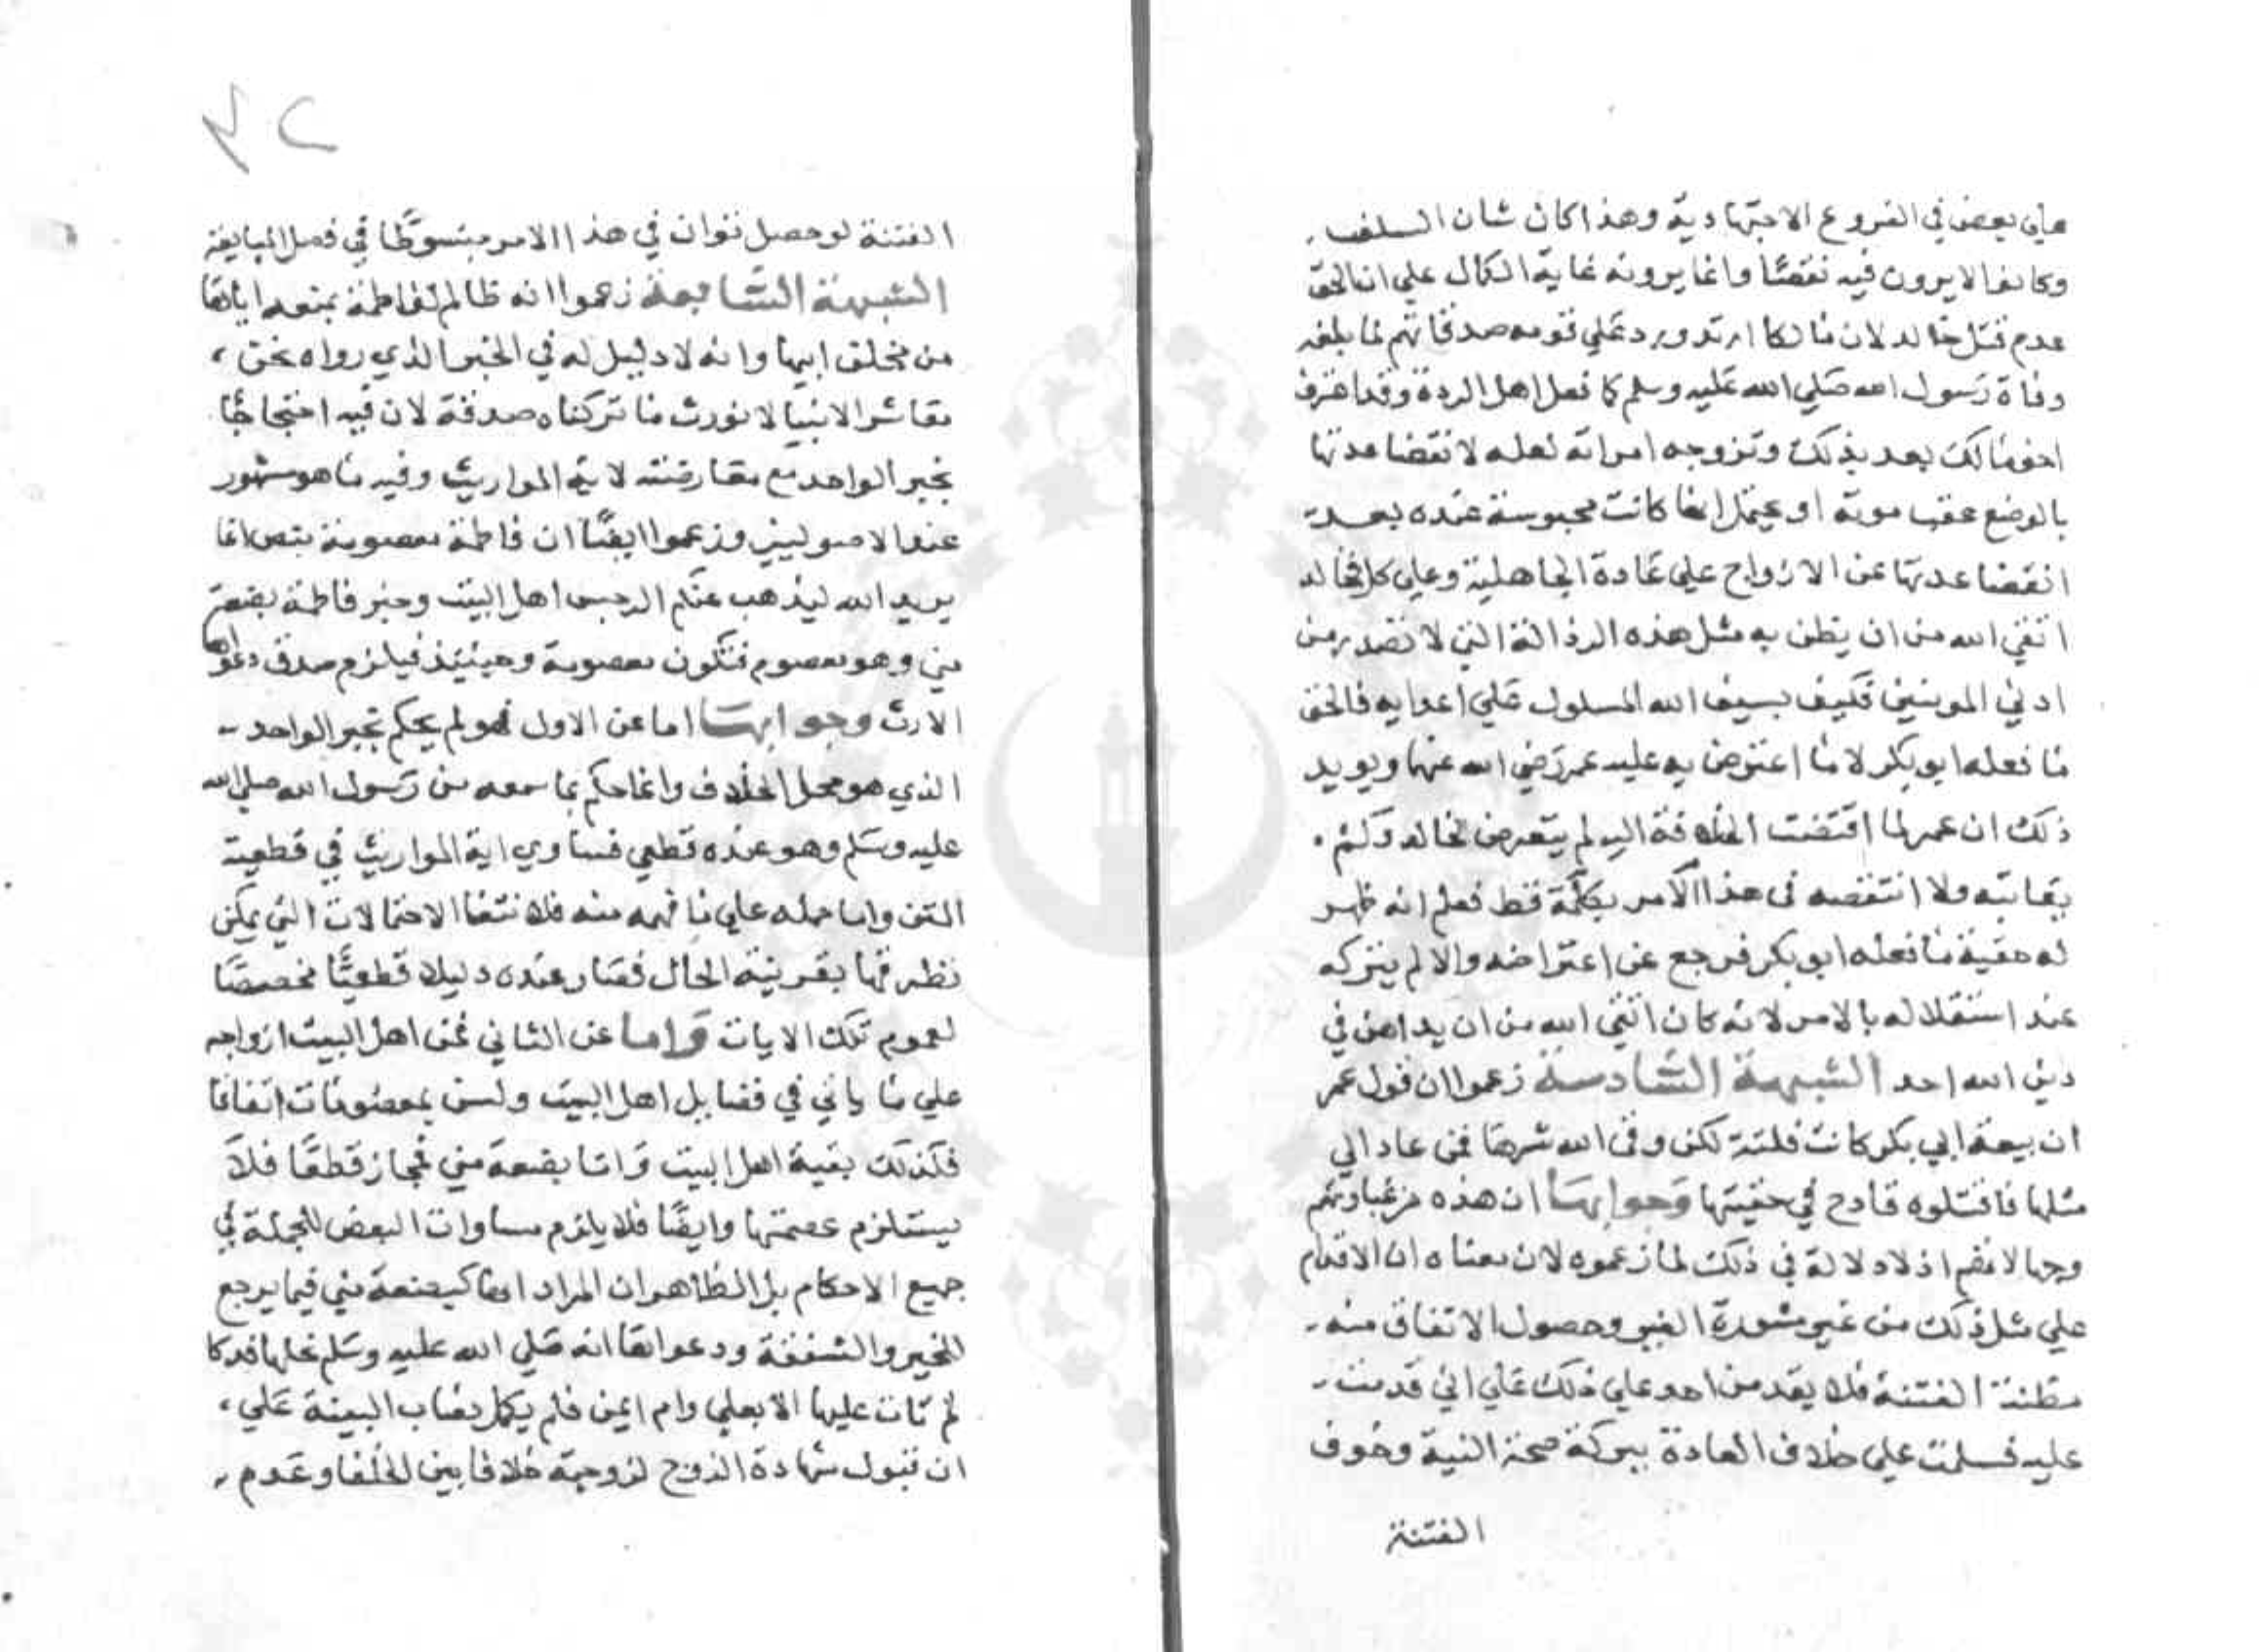 علي بعض في الفروع الاجتهادية وهذا كان شان السلف
وكانوا لا يرون فيه نقصًا وانما يرونه غاية الكمال علي ان الحق
عدم قتل خالد لان مالكا ارتد ورد علي قومه صدقاتهم لما بلغه
وفاة رسول الله صلي الله عليه وسلم كما فعل اهل الردة وقد اعترف
اخو مالك بعد بذلك وتزوجه امراته لعله لانقضا عدتها
بالوضع عقب موته او يحتمل انها كانت محبوسة عنده بعد
انقضا عدتها عن الازواج علي عادة الجاهلية وعلي كل فخالد
اتقي الله من ان يظن به مثل هذه الرذالة التي لا تصدر من
ادني المومنين فكيف بسيف الله المسلول علي اعدايه فالحق
ما فعله ابو بكر لا ما اعترض به عليه عمر رضي الله عنهما ويويد
ذلك ان عمر لما افتضت الخلافة اليه لم يتعرض لخالد ولم
يعاتبه ولا انتقصه في هذا الامر بكلمة قط فعلم انه ظهر
له حقية ما فعله ابو بكر فرجع عن اعتراضه والا لم يتركه
عند استقلاله بالامر لانه كان اتقي الله من ان يداهن في
دين الله احد الشبهة السادسة زعموا ان قول عمر
ان بيعة ابي بكر كانت فلتة لكن وقي الله شرها فمن عاد الي
مثلها فاقتلوه قادح في حقيتها وجوابها ان هذه من غباوتهم
وجهالاتهم اذ لا دلالة في ذلك لما زعموه لان معناه ان الاقدام
علي مثل ذلك من غير مشورة الغير وحصول الاتفاق منه
مظنة الفتنة فلا يقدمن احد علي ذلك علي اني قدمت
عليه فسلمت علي خلاف العادة ببركة صحة النية وخوف
الفتنة
الفتنة لو حصل توان في هذا الامر مبسوطًا في فصل المبايعة
الشبهة السابعة زعموا انه ظالم لفاطمة بمنعه اياها
من مخلف ابيها وانه لا دليل له في الخبر الذي رواه نحن
معاشر الانبيا لا نورث ما تركناه صدقة لان فيه احتجاجًا
بخبر الواحد مع معارضته لاية المواريث وفيه ما هو مشهور
عند الاصوليين وزعموا ايضًا ان فاطمة معصومة بنص انما
يريد الله ليذهب عنكم الرجس اهل البيت وخبر فاطمة بضعة
مني وهو معصوم فتكون معصومة وحينيذ فيلزم صدق دعواها
الارث وجوابها اما عن الاول فهو لم يحكم بخبر الواحد
الذي هو محل الخلاف وانما حكم بما سمعه من رسول الله صلي الله
عليه وسلم وهو عنده قطعي فساوي اية المواريث في قطعية
المتن واما حمله علي ما فهمه منه فلانتفا الاحتمالات التي يمكن
تطرقها بقرينة الحال فصار عنده دليلا قطعيًا مخصصًا
لعموم تلك الايات واما عن الثاني فمن اهل البيت ازواجه
علي ما ياتي في فضايل اهل البيت ولسن بمعصومات اتفاقا
فكذلك بقية اهل البيت واما بضعة مني فمجاز قطعًا فلا
يستلزم عصمتها وايضًا فلا يلزم مساوات البعض للجملة في
جميع الاحكام بل الظاهر ان المراد انها كبضعة مني فيما يرجع
للخير والشفقة ودعواها انه صلي الله عليه وسلم نحلها فدكا
لم تات عليها الا بعلي وام ايمن فلم يكمل نصاب البينة علي
ان قبول شهادة الزوج لزوجته خلافا بين الخلفا وعدم